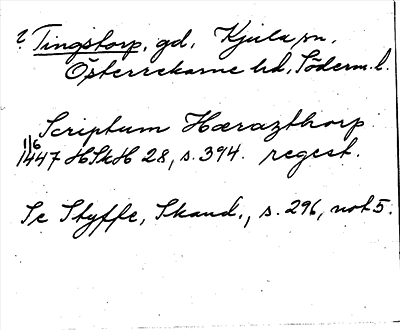 ? Tingstorp, gd, Kjula sn,
Österrekarne hd, Söderm. l.
Scriptum Hærazthorp
11/6 1447 HSkH 28, s. 394. regest.
Se Styffe, Skand., s. 296, not 5.